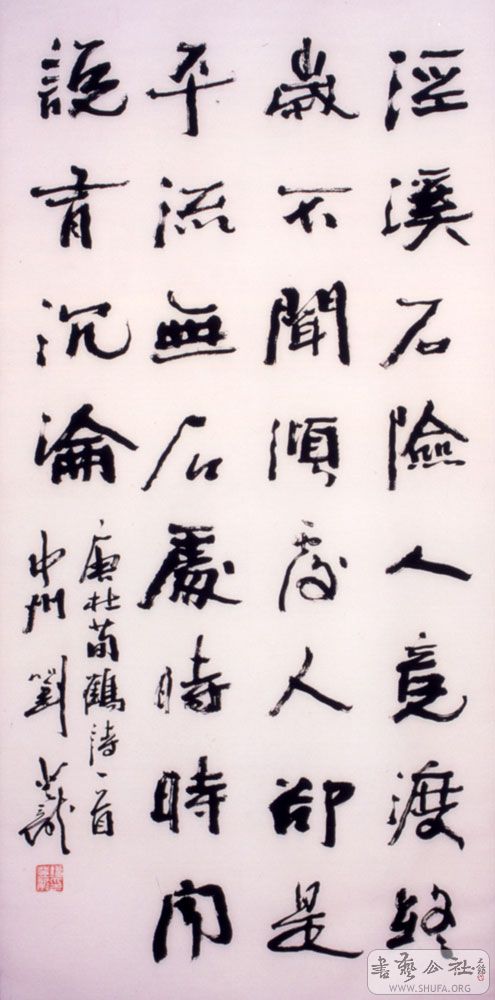 涇溪石險人竟渡終
歲不聞傾覆人卻是
平流無石處時時聞
說有沉淪
唐杜荀鶴詩一首
中州劉
書藝公社
WWW.SHUFA.ORG